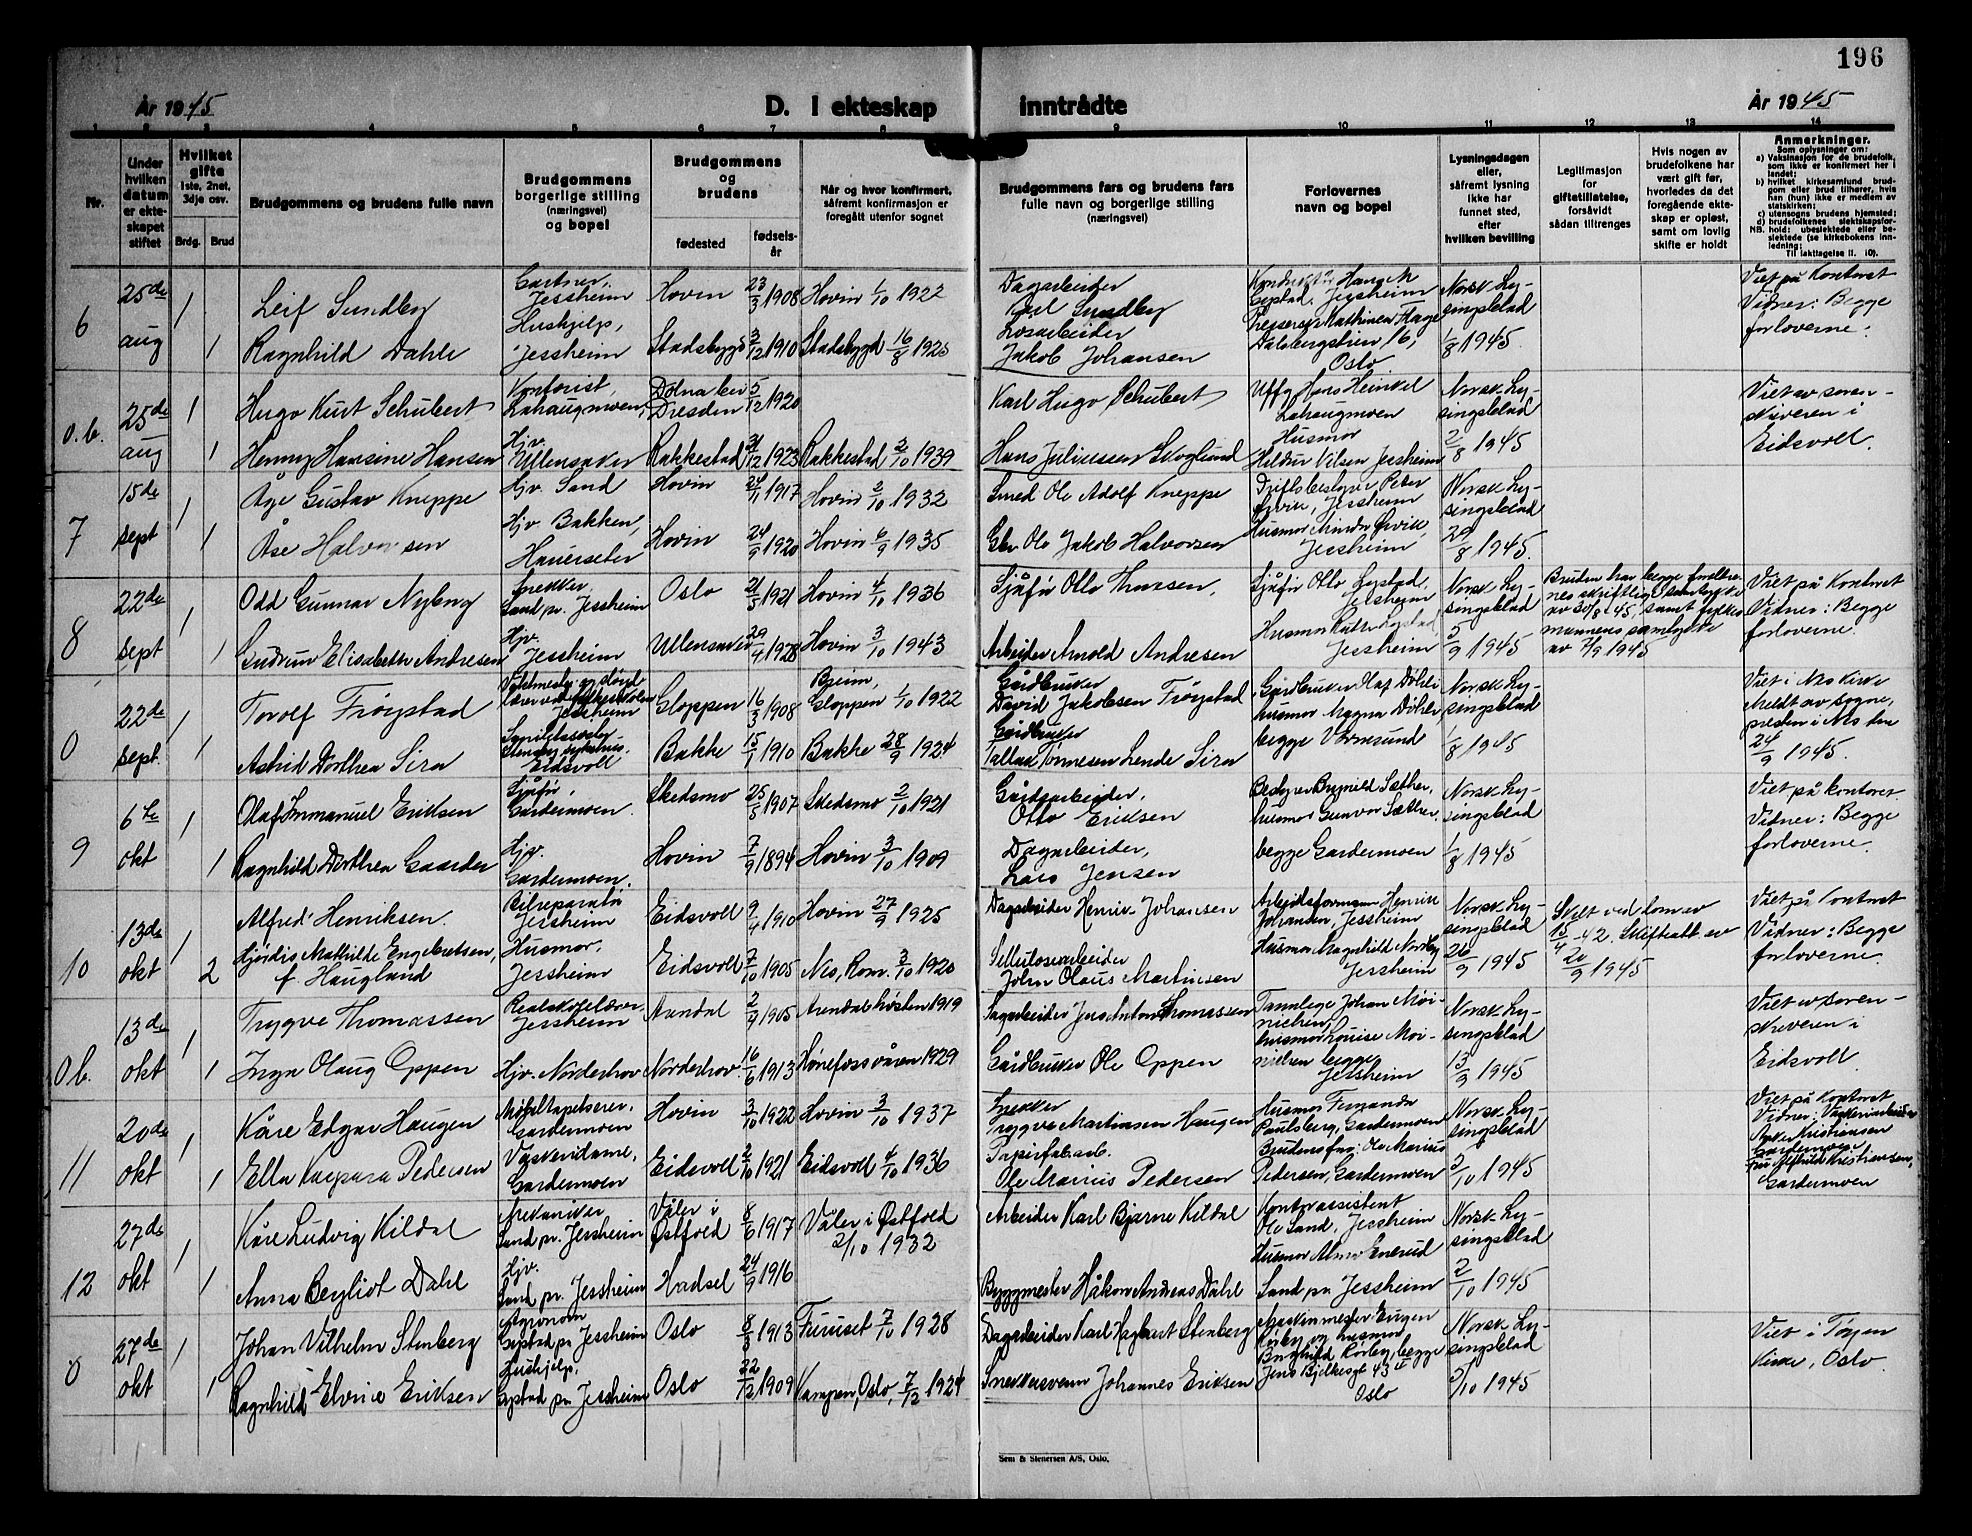 196
År 1945
D. I ekteskap inntrådte
År 1945
1 2 3 4 5 6 7 8 9 10 11 12 13 14
Nr.
Under hvilken datum er ekteskapet stiftet
Hvilket gifte
1ste, 2net, 3dje osv.
Brdg. Brud
Brudgommens og brudens fulle navn
Brudgommens borgerlige stilling (næringsvei) og bopel
Brudgommens og brudens
fødested
fødselsår
Når og hvor konfirmert, såfremt konfirmasjon er foregått utenfor sognet
Brudgommens fars og brudens fars fulle navn og borgerlige stilling (næringsvei)
Forlovernes navn og bopel
Lysningsdagen eller, såfremt lysning ikke har funnet sted, efter hvilken bevilling
Legitimasjon for giftetillatelse, forsåvidt sådan tiltrenges
Hvis nogen av brudefolkene har vært gift før, hvorledes da det foregående ekteskap er opløst, samt om lovlig skifte er holdt
Anmerkninger.
Som oplysninger om:
a) Vaksinasjon for de brudefolk, som ikke er konfirmert her i landet;
b) hvilket kirkesamfund brudgom eller brud tilhører, hvis han (hun) ikke er medlem av statskirken;
c) utensogns brudens hjemsted;
d) brudefolkenes slektskapsforhold: ubeslektede eller beslektede (se kirkebokens innledning;
NB.
Til iakttagelse II. 10).
6
25de aug
1
Leif Sundby
Gartner, Jessheim
Hovin
23/3 1908
Hovin 1/10 1922
Dagarbeider
Karl Sundby
1
Ragnhild Dahle
Hushjelp, Jessheim
Stadsbygd
3/12 1910
Stadsbygd 16/8 1925
Løsarbeider
Jakob Johansen
Dalsbergstien 16, Oslo
Norsk Lysingsblad 1/8 1945.
Viet på Kontoret
Vidner: Begge forloverne.
o.b.
25de aug
1
Hugo Kurt Schubert
Kontorist, Lahaugmoen
Dresden
5/12 1920
Karl Hugo Schubert
Uffg. Hans Heinkel
Lahaugmoen
1
Henny Hansine Hansen
Hjv. Ullensaker
Rakkestad
1923
Rakkestad 3/10 1939
Hans Juliussen Skoglund
Husmor
Hildur Nilsen Jessheim
Norsk Lysingsblad 2/8 1945
Viet av sorenskriveren i Eidsvoll.
7
15de sept
1
Åge Gustav Kneppe
Hjv. Sand
Hovin
24/1 1917
Hovin 2/10 1932
Smed Ole Adolf Kneppe
Driftsbestyrer Peter Ørvik, Jessheim
1
Åse Halvorsen
Hjv Bakken, Hauerseter
Hovin
24/9 1920
Hovin 6/9 1935
Gbr Ole Jakob Halvorsen
Husmor Minda Ørvik, Jessheim
Norsk Lysingsblad 29/8 1945.
8
22de sept
1
Odd Gunnar Nyberg
Snekker, Sand pr. Jessheim
Oslo
21/5 1921
Hovin 4/10 1936
Sjåfør Otto Thorsen,
Sjåfør Otto Lystad, Jessheim
1
Gudrun Elisabeth Andresen
Hjv. Jessheim
Ullensaker
29/4 1928
Hovin 3/10 1943
Arbeider Arnold Andresen
Jessheim
Norsk Lysingsblad 5/9 1945
Bruden har begge foreldrenes skriftlige samtykke av 30/8-45, samt fylkesmannens samtykke av 7/9 1945
Viet på Kontoret
Vidner: Begge forloverne.
0
22de sept.
1
Torolf Frøystad
Jessheim
Gloppen
16/3 1908
Gloppen 1/10 1922
Gårdbruker
David Jakobsen Frøystad
Gårdbruker Olaf Døhli
husmor Magna Døhli
begge Vormsund
1
Astrid Dorthea Sira
Eidsvoll
Bakke
15/1 1910
Bakke 28/9 1924
Gårdbruker
Tallak Tønnesen Lende Sira
Norsk Lysingsblad 1/8 1945
Viet i Nes kirke
Meldt av sognepresten i Nes den 24/9 1945.
9
6te okt
1
Olaf Immanuel Eriksen
Sjåfør, Gardermoen
Skedsmo
25/5 1907
Skedsmo 2/10 1921
Gårdsarbeider,
Otto Eriksen
Bestyrer Brynild Sæther,
husmor Gunvor Sæther,
begge Gardermoen
1
Ragnhild Dorthea Gaarder
Hjv. Gardermoen.
Hovin
7/9 1894
Hovin 3/10 1909
Dagarbeider,
Lars Jensen
Norsk Lysingsblad 1/8 1945
Viet på kontoret.
Vidner: Begge forloverne.
10
13de okt
1
Alfred Henriksen.
Bilreparatør Jessheim
Eidsvoll
9/4 1910
Hovin 27/9 1925
Dagarbeider Henrik Johansen
Arbeidsformann Henrik Johansen, Jessheim
2
Hjørdis Mathilde Engebretsen, f. Haugland
Husmor, Jessheim
Eidsvoll
7/10 1905
Nes, Rom. 3/10 1920
Cellulosearbeider
John Olaus Martinsen
Husmor Magnhild Nordby Jessheim
Norsk Lysingsblad 26/9 1945
Skilt ved dom av 15/4-42. Skifteatt. av 20/9 1945
Viet på Kontoret
Vidner: Begge forloverne.
0b.
13de okt
1
Trygve Thomassen
Realskolelærer, Jessheim
Arendal
2/9 1905
Arendal høsten 1919
Sagarbeider Jens Anton Thomassen
Tannlege Johan Moi-nielsen,
husmor Louise Moi-nielsen begge Jessheim
1
Inga Olaug Oppen
Hjv. Norderhov
Norderhov
16/6 1913
Hønefoss våren 1929
Gårdbruker Ole Oppen
Norsk Lysingsblad 13/9 1945
Viet av sorenskriveren i Eidsvoll
11
20de okt
1
Kåre Edgar Haugen
Møbeltapetserer, Gardermoen
Hovin
3/10 1922
Hovin 3/10 1937
Snekker
Trygve Martinsen Haugen
Husmor Fernanda Paulsberg, Gardermoen
1
Ella Kaspara Pedersen
Vaskeridame, Gardermoen
Eidsvoll
1921
Eidsvoll 4/10 1936
Papirfab.arb.
Ole Marius Pedersen
Brudens far: Ole Marius Pedersen, Gardermoen
Norsk Lysingsblad 3/10 1945
Viet på Kontoret
Vidner: Kristiansen Gardermoen
Kristiansen, Gardermoen
12
27de okt
1
Kåre Ludvig Kildal
Mekaniker Sand pr. Jessheim
Våler i Østfold
8/6 1917
Våler i Østfold 2/10 1932
Arbeider Karl Bjarne Kildal
Kontorassistent
Ole Sand, Jessheim
1
Anna Bergliot Dahl
Hjv. Sand pr. Jessheim
Hadsel
24/9 1916
Byggmester Håkon Andreas Dahl
Husmor Alma Enerud
Sand pr Jessheim
Norsk Lysingsblad 2/10 1945
0
27de okt
1
Johan Vilhelm Stenberg
Agronom Gystad pr Jessheim
Oslo
8/5 1913
Furuset 7/10 1928
Dagarbeider Karl Hagbart Stenberg
Maskinmester Eugen Rørby og husmor Borghild Rørby begge
Jens Bjelkesgt 43 II Oslo
1
Ragnhild Elvine Eriksen
Hushjelp, Gystad pr Jessheim
Oslo
22/12 1909
Kampen, Oslo, 7/12 1924
Snekkersvenn Johannes Eriksen
Norsk Lysingsblad 5/10 1945
Viet i Tøyen Kirke, Oslo
Sem & Stenersen A/S, Oslo.